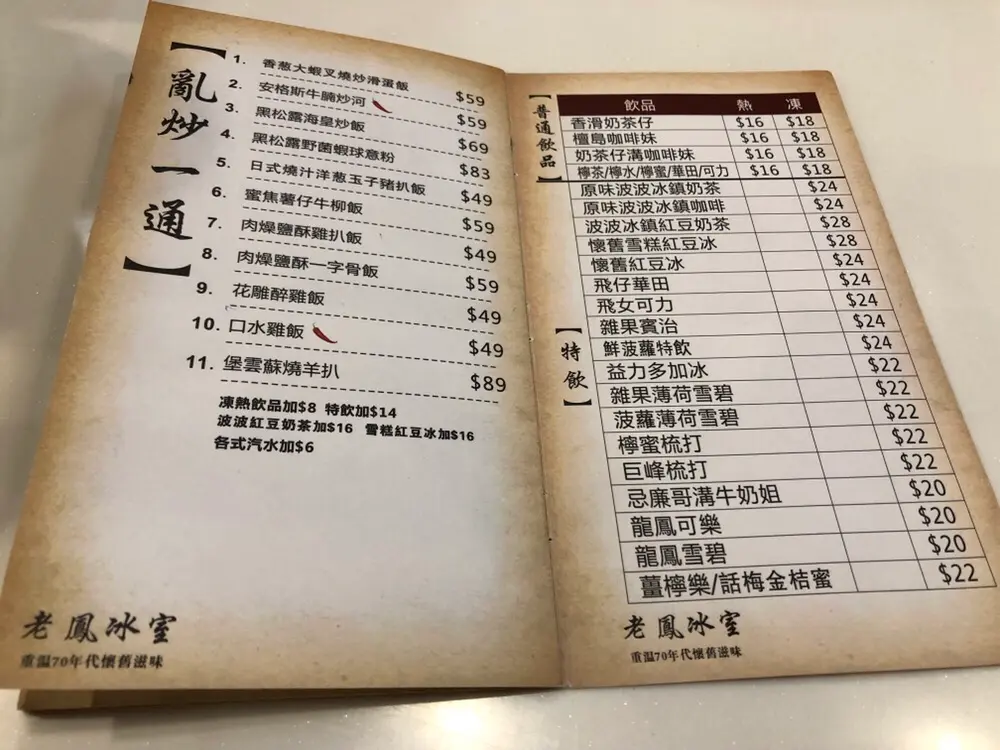 【亂炒一通】
1. 香葱大蝦叉燒炒滑蛋飯 $59
2. 安格斯牛腩炒河 $59
3. 黑松露海皇炒飯 $69
4. 黑松露野菌蝦球意粉 $83
5. 日式燒汁洋葱玉子豬扒飯 $49
6. 蜜焦薯仔牛柳飯 $59
7. 肉燥鹽酥雞扒飯 $49
8. 肉燥鹽酥一字骨飯 $59
9. 花雕醉雞飯 $49
10. 口水雞飯 $49
11. 堡雲蘇燒羊扒 $89
凍熱飲品加$8 特飲加$14
波波紅豆奶茶加$16 雪糕紅豆冰加$16
各式汽水加$6
老鳳冰室
重溫70年代懷舊滋味
【普通飲品】
飲品 熱 凍
香滑奶茶仔 $16 $18
檀島咖啡妹 $16 $18
奶茶仔溝咖啡妹 $16 $18
檸茶/檸水/檸蜜/華田/可力 $16 $18
【特飲】
原味波波冰鎮奶茶 $24
原味波波冰鎮咖啡 $24
波波冰鎮紅豆奶茶 $28
懷舊雪糕紅豆冰 $28
懷舊紅豆冰 $24
飛仔華田 $24
飛女可力 $24
雜果賓治 $24
鮮菠蘿特飲 $24
益力多加冰 $22
雜果薄荷雪碧 $22
菠蘿薄荷雪碧 $22
檸蜜梳打 $22
巨峰梳打 $22
忌廉哥溝牛奶姐 $20
龍鳳可樂 $20
龍鳳雪碧 $20
薑檸樂/話梅金桔蜜 $22
老鳳冰室
重溫70年代懷舊滋味